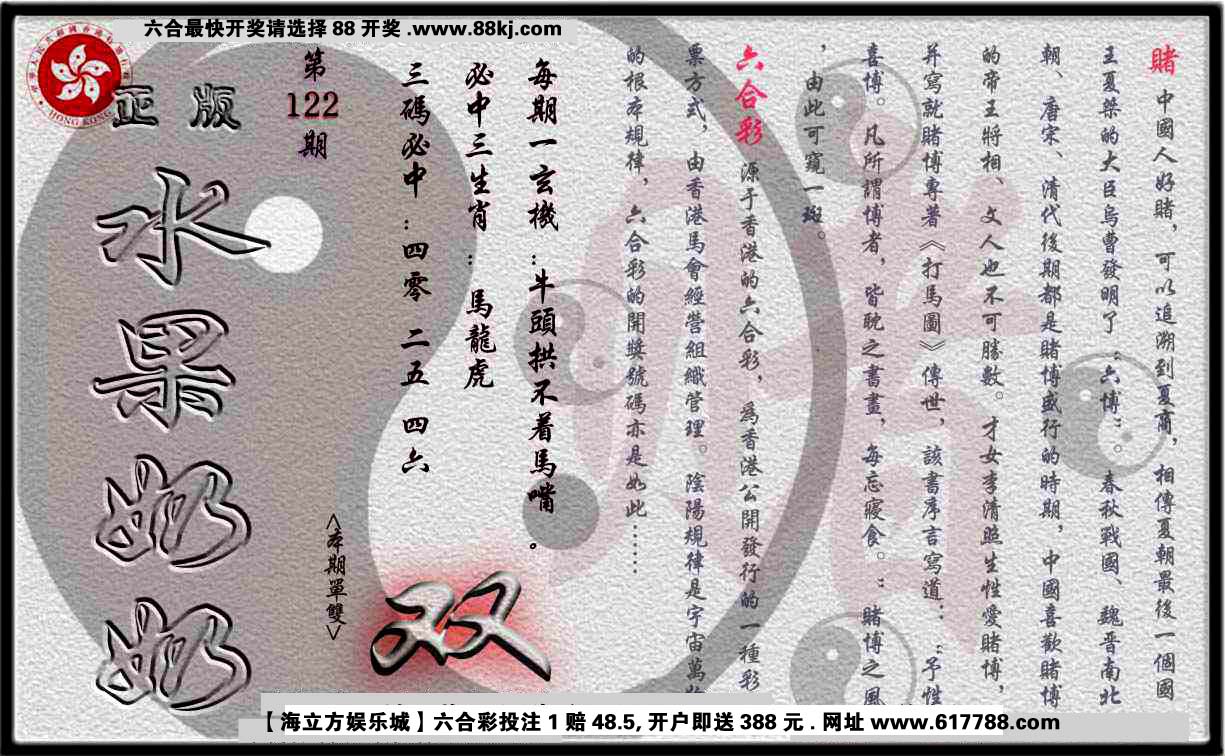 六合最快开奖请选择 88 开奖 .www.88kj.com
HONG KONG
賭 中國人好賭，可以追溯到夏商，相傳夏朝最後一個國
王夏桀的大臣烏曹發明了“六博”。春秋戰國、魏晋南北
朝、唐宋、清代後期都是賭博盛行的時期，中國喜歡賭博
的帝王將相、文人也不可勝數。才女李清照生性愛賭博，
并寫就賭博專著《打馬圖》傳世，該書序言寫道：“予性
喜博。凡所謂博者，皆耽之書畫，每忘寢食。”賭博之風
，由此可窺一斑。
六合彩 源于香港的六合彩，為香港公開發行的一種彩
票方式，由香港馬會經營組織管理。陰陽規律是宇宙萬
的根本規律，六合彩的開獎號碼亦是如此……
每期一玄機：牛頭拱不着馬嘴。
必中三生肖：馬龍虎
三碼必中：四零 二五 四六
第122期
<本期單雙>
双
正版
水果奶奶
【海立方娱乐城】六合彩投注 1 赔 48.5, 开户即送 388 元 . 网址 www.617788.com